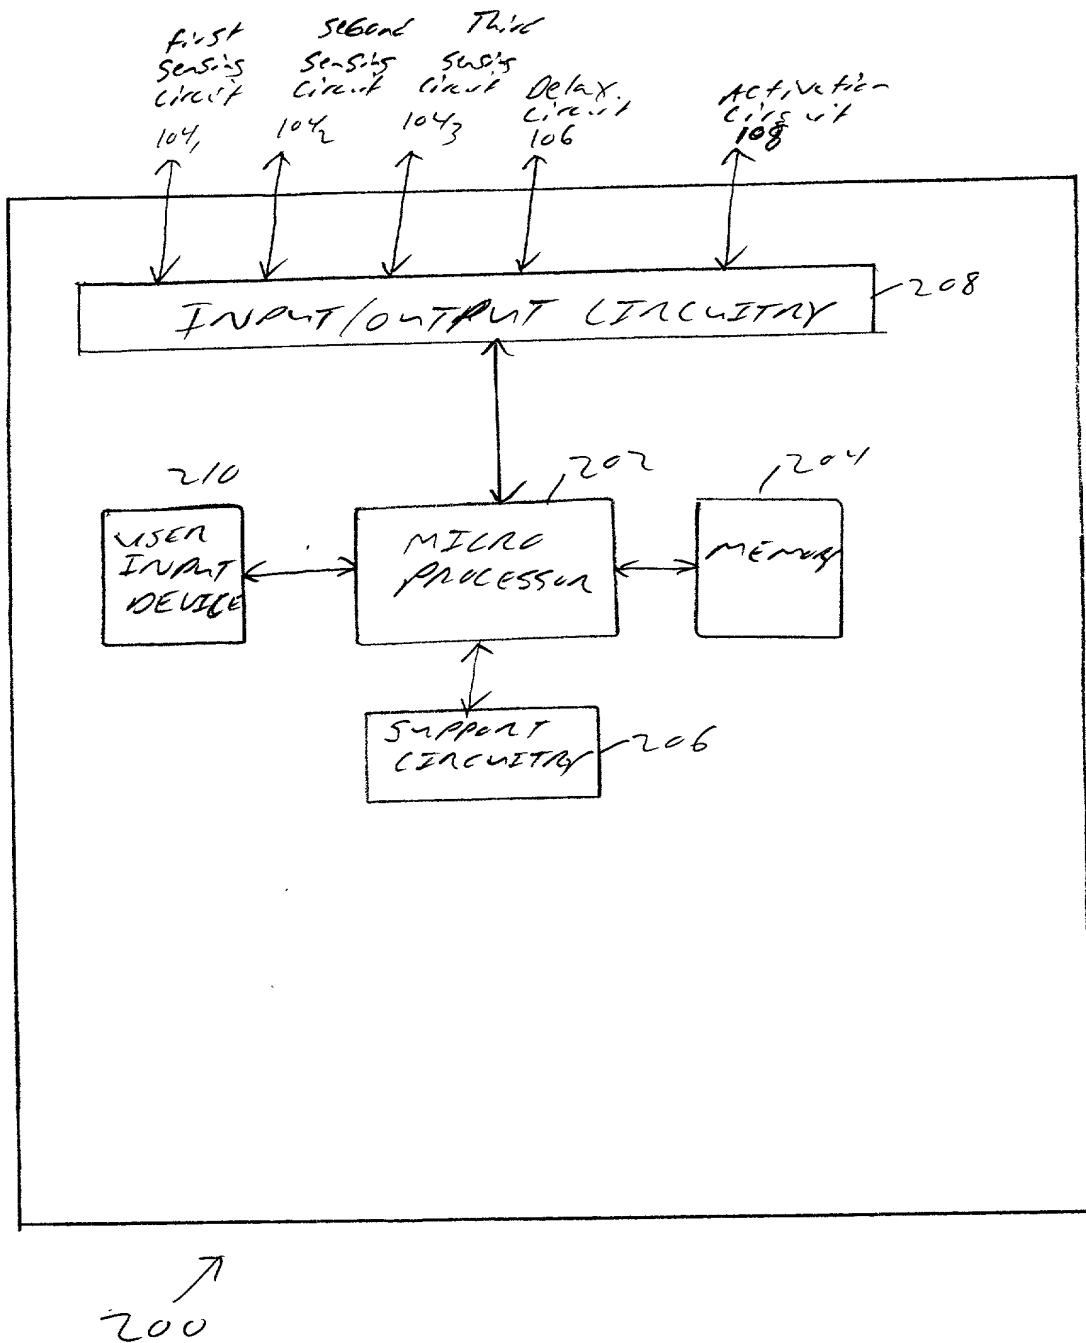 first
sensing
circuit
104₁
second
sensing
circuit
104₂
Third
sensing
circuit
104₃
Delay
circuit
106
Activation
circuit
108
INPUT/OUTPUT CIRCUITRY
208
210
USER
INPUT
DEVICE
202
MICRO
PROCESSOR
204
MEMORY
SUPPORT
CIRCUITRY
206
200